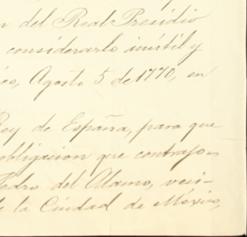 n del Real Presidio
considerarlo inútil y
co, Agosto 5 de 1770, en
Rey de España, para que
obligacion que contrajo
Pedro del Alamo, veci-
de la Ciudad de México,